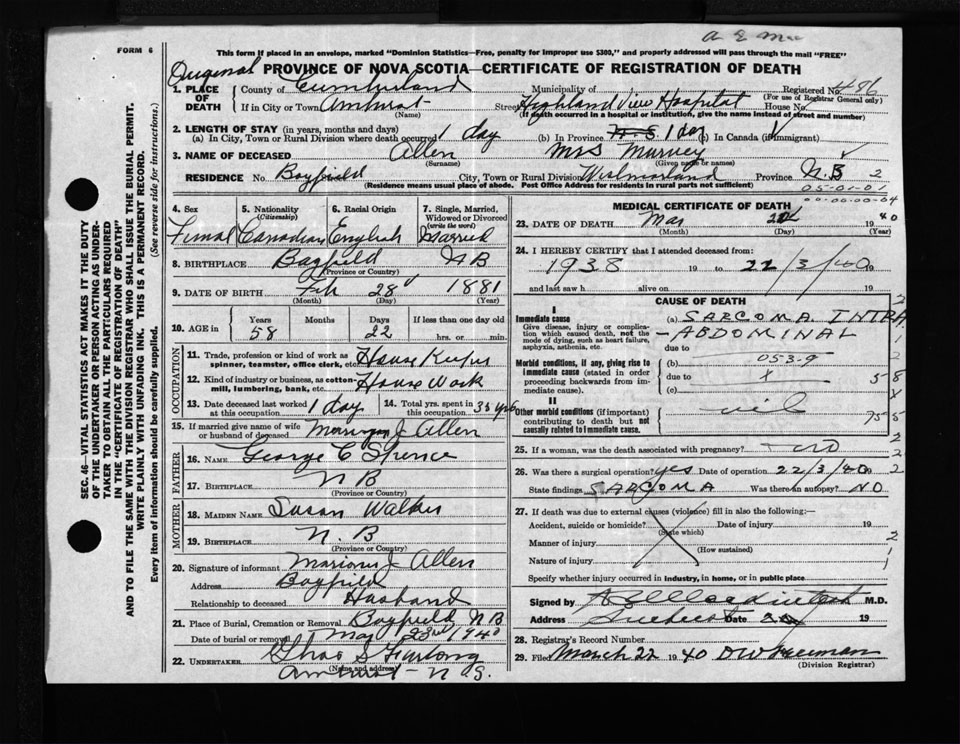 A E Mac
FORM 6
This form if placed in an envelope, marked "Dominion Statistics—Free, penalty for improper use $300," and properly addressed will pass through the mail "FREE"
Original PROVINCE OF NOVA SCOTIA—CERTIFICATE OF REGISTRATION OF DEATH
1. PLACE OF DEATH
County of Cumberland Municipality of Registered No. 486
(For use of Registrar General only)
If in City or Town Amherst Street Highland View Hospital House No.
(Name) (If death occurred in a hospital or institution, give the name instead of street and number)
2. LENGTH OF STAY (in years, months and days)
(a) In City, Town or Rural Division where death occurred 1 day (b) In Province N.S 1 day (c) In Canada (if immigrant)
3. NAME OF DECEASED Allen Mrs Murvey
(Surname) (Given name or names)
RESIDENCE No. Bayfield City, Town or Rural Division Westmorland Province N.B 2
(Residence means usual place of abode. Post Office Address for residents in rural parts not sufficient)
05-01-01
00-00-00-04
SEC. 46—VITAL STATISTICS ACT MAKES IT THE DUTY
OF THE UNDERTAKER OR PERSON ACTING AS UNDER-
TAKER TO OBTAIN ALL THE PARTICULARS REQUIRED
IN THE "CERTIFICATE OF REGISTRATION OF DEATH"
AND TO FILE THE SAME WITH THE DIVISION REGISTRAR WHO SHALL ISSUE THE BURIAL PERMIT.
WRITE PLAINLY WITH UNFADING INK. THIS IS A PERMANENT RECORD.
Every item of Information should be carefully supplied. (See reverse side for instructions.)
4. Sex
Femal
5. Nationality
(Citizenship)
Canadian
6. Racial Origin
English
7. Single, Married, Widowed or Divorced
(write the word)
Married
8. BIRTHPLACE Bayfield N B
(Province or Country)
9. DATE OF BIRTH Feb 28 1881
(Month) (Day) (Year)
10. AGE in
Years Months Days If less than one day old
58 22 hrs. or min.
OCCUPATION
11. Trade, profession or kind of work as House Keeper
spinner, teamster, office clerk, etc.
12. Kind of industry or business, as cotton- House Work
mill, lumbering, bank, etc.
13. Date deceased last worked at this occupation 1 day
14. Total yrs. spent in this occupation 35 yrs
15. If married give name of wife or husband of deceased J Allen
FATHER
16. NAME George C Spence
17. BIRTHPLACE N B
(Province or Country)
MOTHER
18. MAIDEN NAME Susan Walker
19. BIRTHPLACE N. B
(Province or Country)
20. Signature of informant J Allen
Address Bayfield
Relationship to deceased Husband
21. Place of Burial, Cremation or Removal Bayfield N B
Date of burial or removal Mar 23rd 1940
22. UNDERTAKER Thos S Furlong
(Name and address)
Amherst — N S.
MEDICAL CERTIFICATE OF DEATH
23. DATE OF DEATH Mar 22 1940
(Month) (Day) (Year)
24. I HEREBY CERTIFY that I attended deceased from:
1938 19 to 22/3/40 19
and last saw h alive on 19
CAUSE OF DEATH
I
Immediate cause
Give disease, injury or complication which caused death, not the mode of dying, such as heart failure, asphyxia, asthenia, etc.
(a) SARCOMA. INTRA
— ABDOMINAL
due to
Morbid conditions, if any, giving rise to immediate cause (stated in order proceeding backwards from immediate cause).
(b) 053-9
due to x
(c)
II
Other morbid conditions (if important) contributing to death but not causally related to immediate cause.
nil
25. If a woman, was the death associated with pregnancy? no
26. Was there a surgical operation? yes Date of operation 22/3/40 19
State findings SARCOMA Was there an autopsy? NO
27. If death was due to external causes (violence) fill in also the following:—
Accident, suicide or homicide? Date of injury 19
(State which)
Manner of injury
(How sustained)
Nature of injury
Specify whether injury occurred in industry, in home, or in public place
Signed by M.D.
Address Date 19
28. Registrar's Record Number
29. Filed March 22 1940 D W Freeman
(Division Registrar)